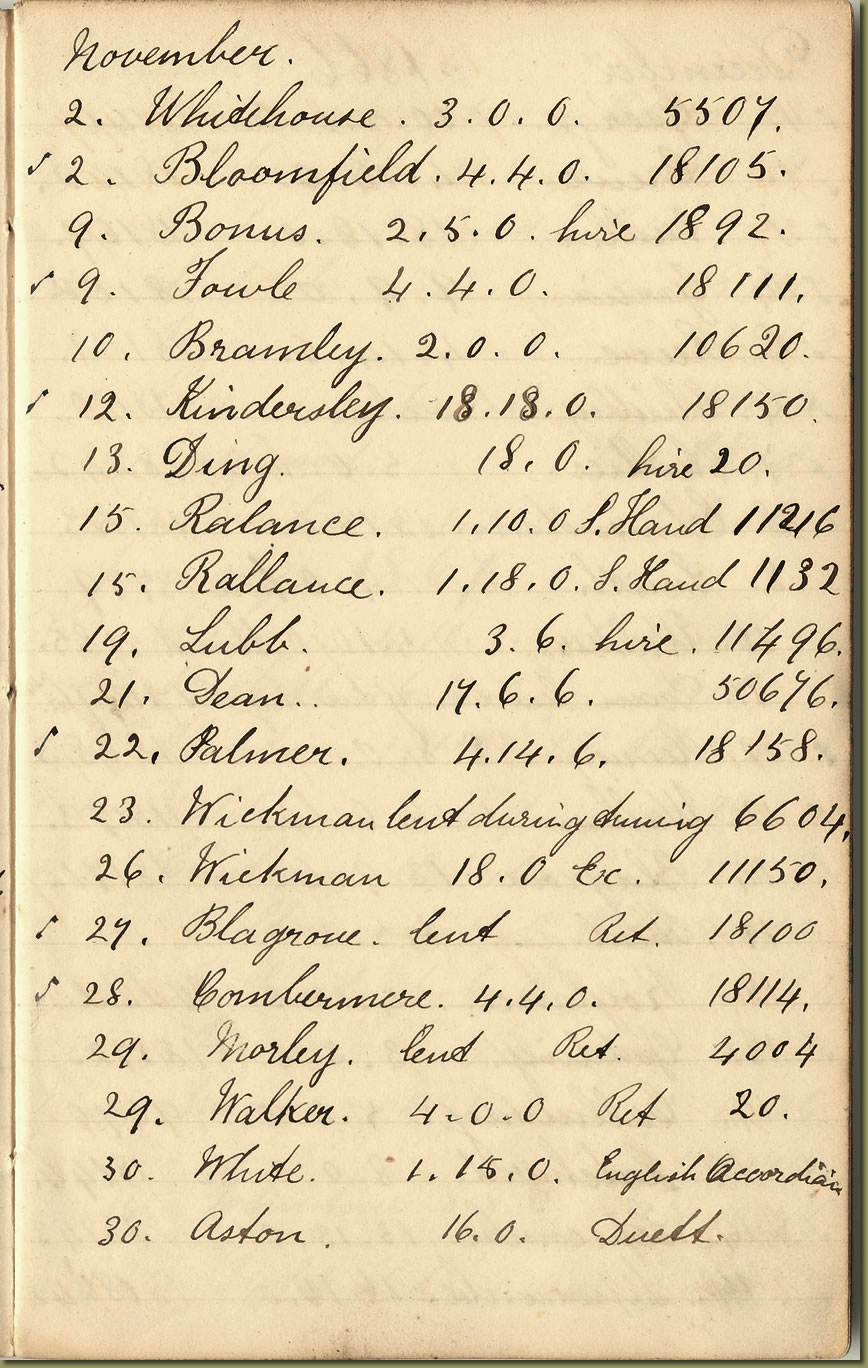 November.
2. Whitehouse. 3.0.0. 5507.
2. Bloomfield. 4.4.0. 18105.
9. Bonus. 2.5.0. hire 1892.
9. Fowle 4.4.0. 18111.
10. Bramley. 2.0.0. 10620.
12. Kindersley. 18.18.0. 18150.
13. Ding. 18.0. hire 20.
15. Ralance. 1.10.0 S. Hand 11216
15. Rallance. 1.18.0. S. Hand 1132
19. Lubb. 3.6. hire. 11496.
21. Dean.. 17.6.6. 50676.
22. Palmer. 4.14.6. 18158.
23. Wickman lent during tuning 6604.
26. Wickman 18.0 Ex. 11150.
27. Blagrove. lent Ret. 18100
28. Combermere. 4.4.0. 18114.
29. Morley. lent Ret. 4004
29. Walker. 4.0.0 Ret 20.
30. White. 1.18.0. English Accordian
30. Aston. 16.0. Duett.